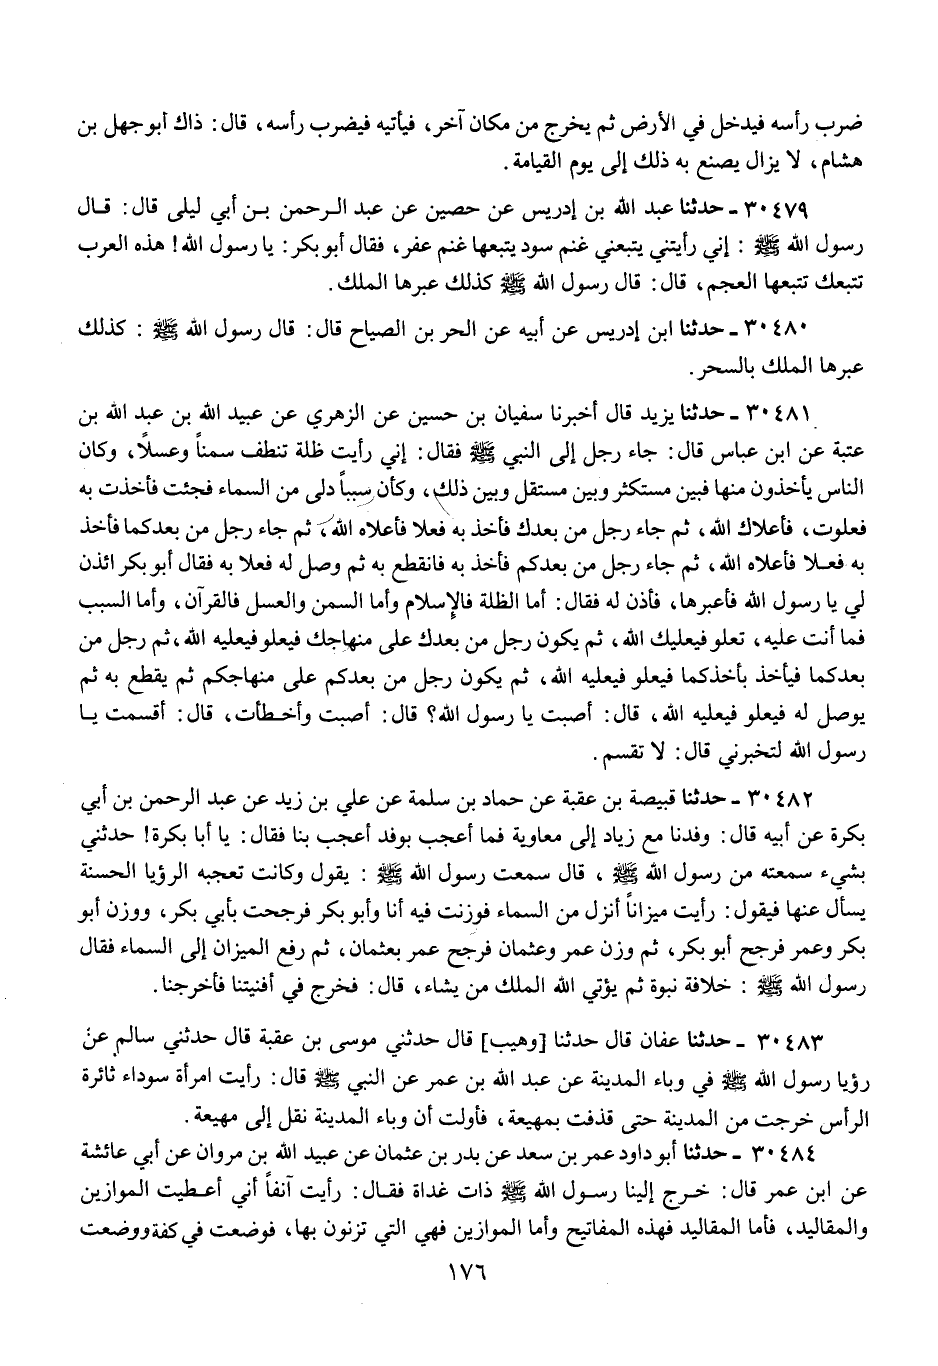 ضرب رأسه فيدخل في الأرض ثم يخرج من مكان آخر، فيأتيه فيضرب رأسه، قال: ذاك أبو جهل بن
هشام، لا يزال يصنع به ذلك إلى يوم القيامة.
٣٠٤٧٩ ـ حدثنا عبد الله بن إدريس عن حصين عن عبد الرحمن بن أبي ليلى قال: قال
رسول الله ﷺ : إني رأيتني يتبعني غنم سود يتبعها غنم عفر، فقال أبو بكر: يا رسول الله! هذه العرب
تتبعك تتبعها العجم، قال: قال رسول الله ﷺ كذلك عبرها الملك.
٣٠٤٨٠ ـ حدثنا ابن إدريس عن أبيه عن الحر بن الصياح قال: قال رسول الله ﷺ : كذلك
عبرها الملك بالسحر.
٣٠٤٨١ ـ حدثنا يزيد قال أخبرنا سفيان بن حسين عن الزهري عن عبيد الله بن عبد الله بن
عتبة عن ابن عباس قال: جاء رجل إلى النبي ﷺ فقال: إني رأيت ظلة تنطف سمناً وعسلاً، وكان
الناس يأخذون منها فبين مستكثر وبين مستقل وبين ذلك، وكأن سبباً دلى من السماء فجئت فأخذت به
فعلوت، فأعلاك الله، ثم جاء رجل من بعدك فأخذ به فعلا فأعلاه الله، ثم جاء رجل من بعدكما فأخذ
به فعلا فأعلاه الله، ثم جاء رجل من بعدكم فأخذ به فانقطع به ثم وصل له فعلا به فقال أبو بكر ائذن
لي يا رسول الله فأعبرها، فأذن له فقال: أما الظلة فالإسلام وأما السمن والعسل فالقرآن، وأما السبب
فما أنت عليه، تعلو فيعليك الله، ثم يكون رجل من بعدك على منهاجك فيعلو فيعليه الله، ثم رجل من
بعدكما فيأخذ بأخذكما فيعلو فيعليه الله، ثم يكون رجل من بعدكم على منهاجكم ثم يقطع به ثم
يوصل له فيعلو فيعليه الله، قال: أصبت يا رسول الله؟ قال: أصبت وأخطأت، قال: أقسمت يا
رسول الله لتخبرني قال: لا تقسم.
٣٠٤٨٢ ـ حدثنا قبيصة بن عقبة عن حماد بن سلمة عن علي بن زيد عن عبد الرحمن بن أبي
بكرة عن أبيه قال: وفدنا مع زياد إلى معاوية فما أعجب بوفد أعجب بنا فقال: يا أبا بكرة! حدثني
بشيء سمعته من رسول الله ﷺ ، قال سمعت رسول الله ﷺ : يقول وكانت تعجبه الرؤيا الحسنة
يسأل عنها فيقول: رأيت ميزاناً أنزل من السماء فوزنت فيه أنا وأبو بكر فرجحت بأبي بكر، ووزن أبو
بكر وعمر فرجح أبو بكر، ثم وزن عمر وعثمان فرجح عمر بعثمان، ثم رفع الميزان إلى السماء فقال
رسول الله ﷺ : خلافة نبوة ثم يؤتي الله الملك من يشاء، قال: فخرج في أفنيتنا فأخرجنا.
٣٠٤٨٣ ـ حدثنا عفان قال حدثنا [وهيب] قال حدثني موسى بن عقبة قال حدثني سالم عن
رؤيا رسول الله ﷺ في وباء المدينة عن عبد الله بن عمر عن النبي ﷺ قال: رأيت امرأة سوداء ثائرة
الرأس خرجت من المدينة حتى قذفت بمهيعة، فأولت أن وباء المدينة نقل إلى مهيعة.
٣٠٤٨٤ ـ حدثنا أبو داود عمر بن سعد عن بدر بن عثمان عن عبيد الله بن مروان عن أبي عائشة
عن ابن عمر قال: خرج إلينا رسول الله ﷺ ذات غداة فقال: رأيت آنفاً أني أعطيت الموازين
والمقاليد، فأما المقاليد فهذه المفاتيح وأما الموازين فهي التي تزنون بها، فوضعت في كفة ووضعت
١٧٦